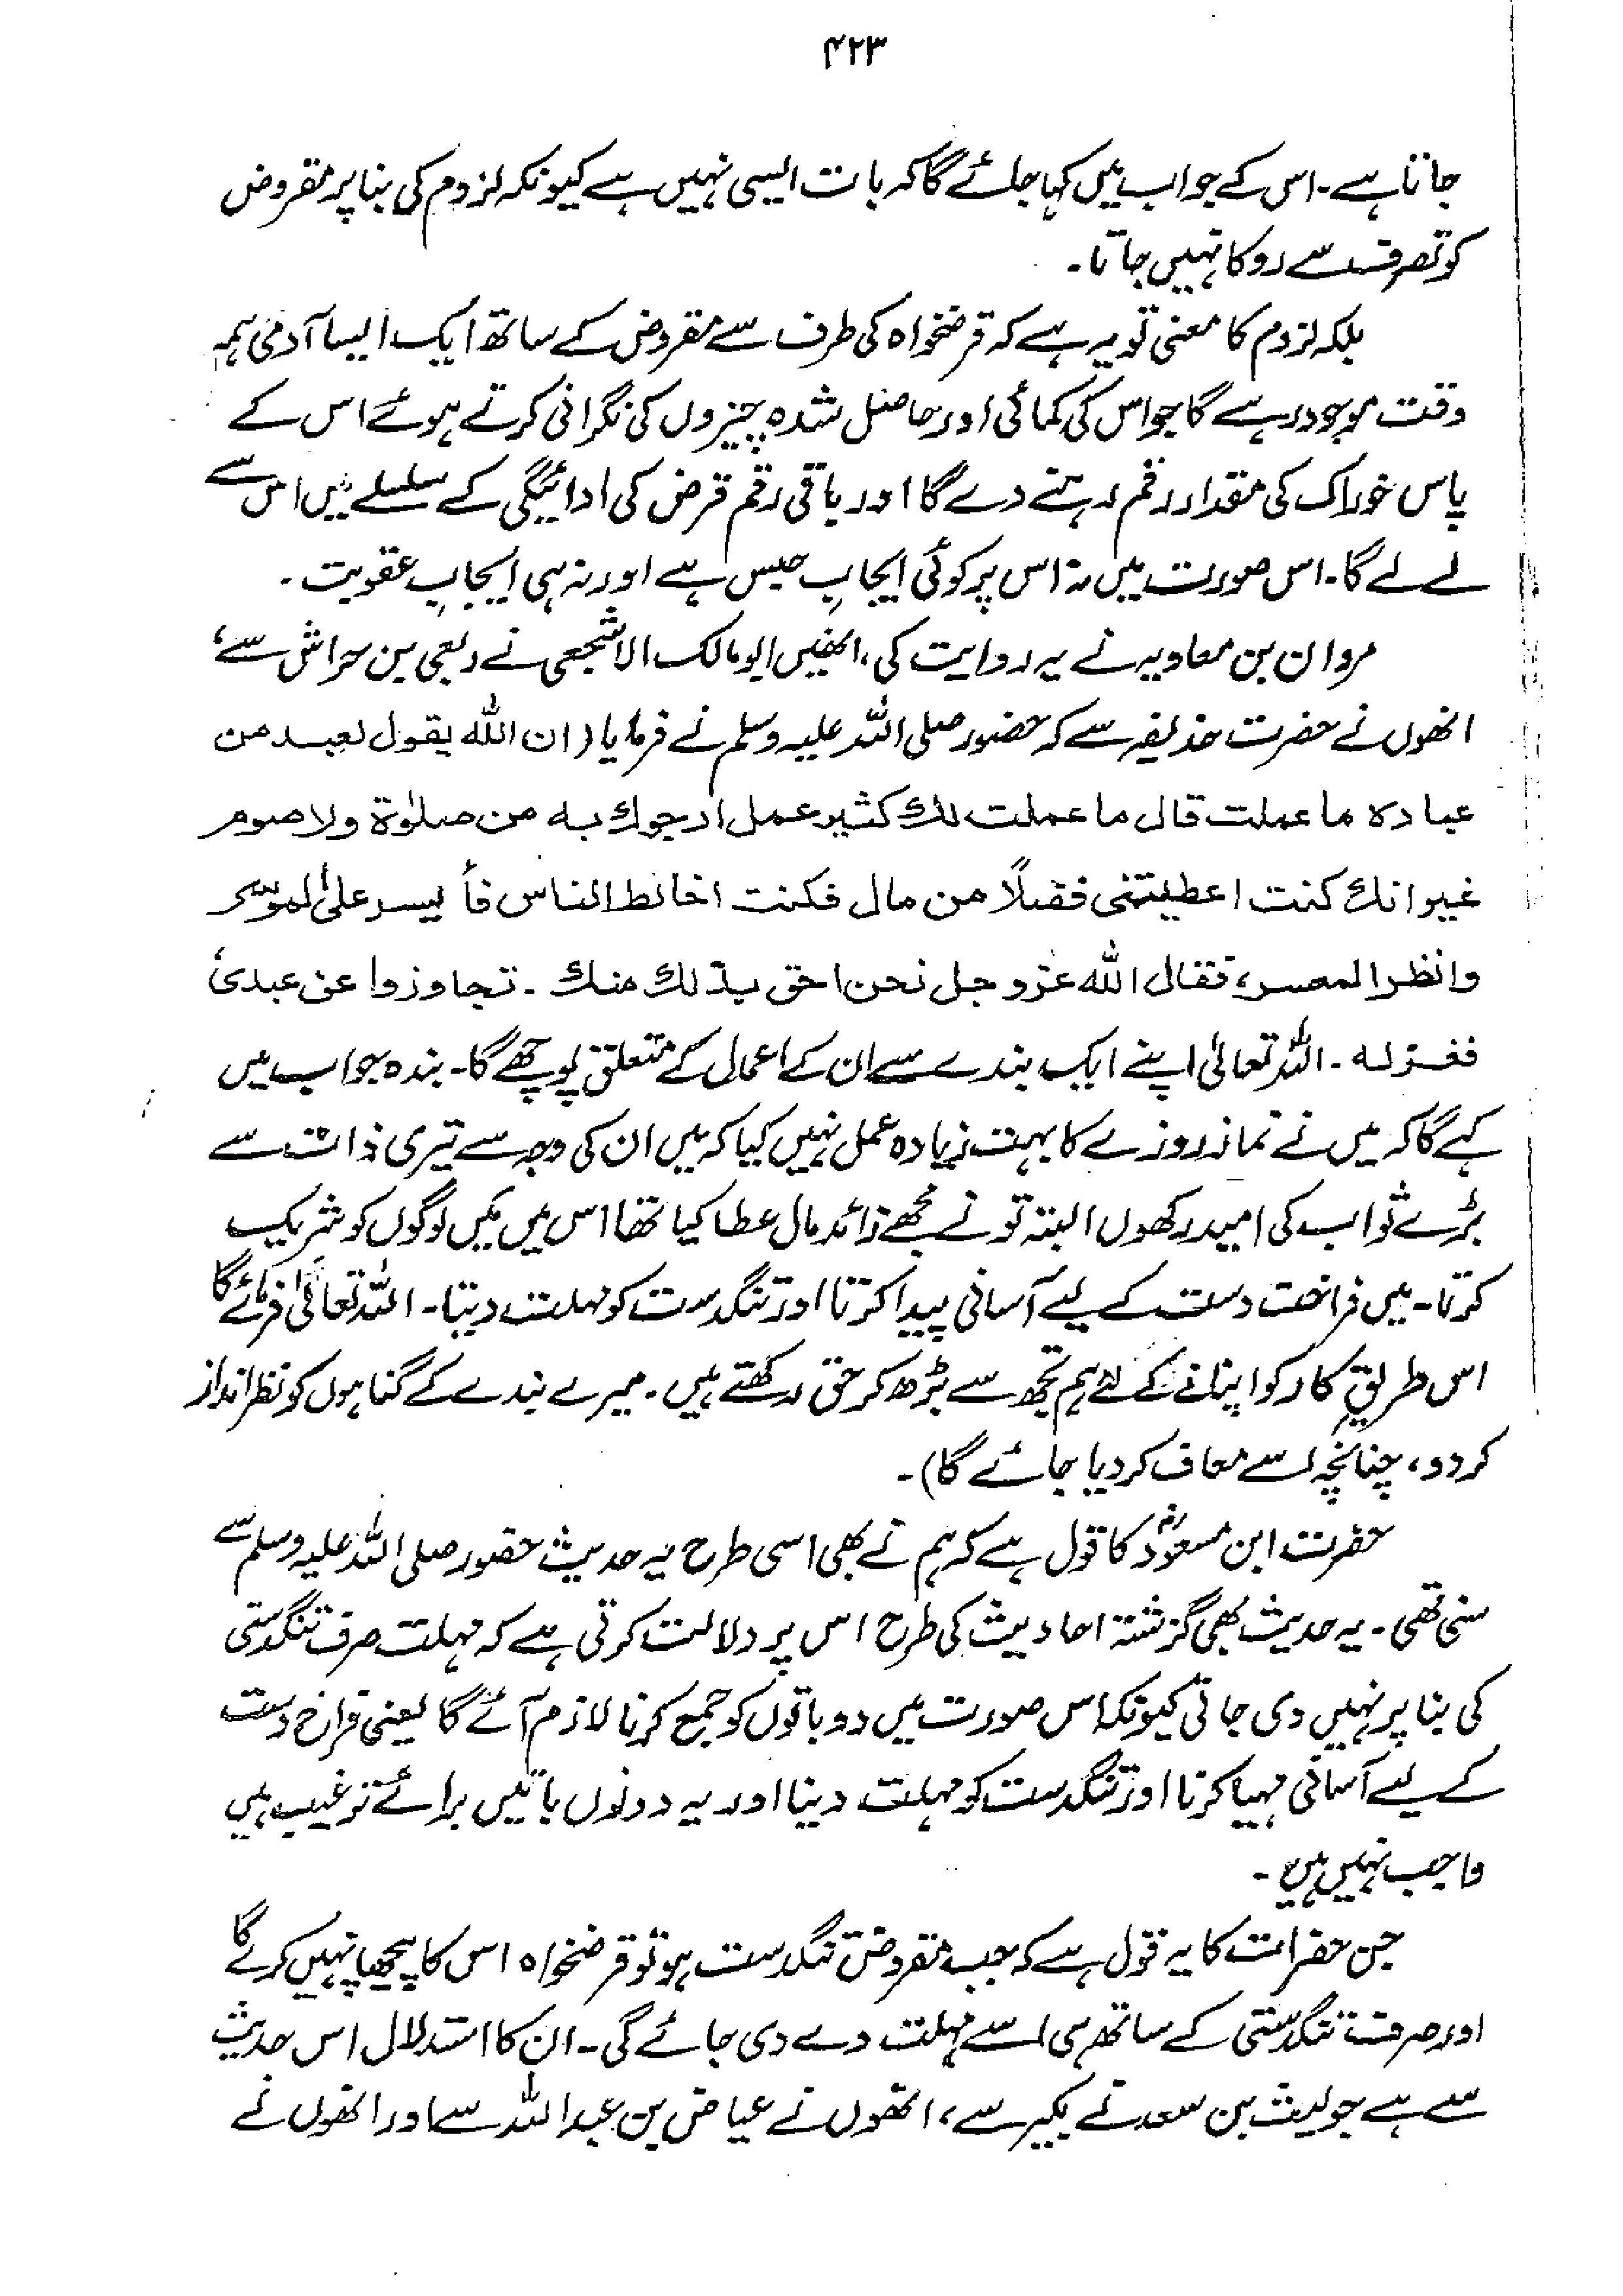 ۴۲۳
جاتا ہے۔ اس کے جواب میں کہا جائے گا کہ بات ایسی نہیں ہے کیونکہ لزوم کی بنا پر مقروض
کو تصرف سے روکا نہیں جاتا۔
بلکہ لزوم کا معنی تو یہ ہے کہ قرضخواہ کی طرف سے مقروض کے ساتھ ایک ایسا آدمی ہمہ
وقت موجود رہے گا جو اس کی کمائی اور حاصل شدہ چیزوں کی نگرانی کرتے ہوئے اس کے
پاس خوراک کی مقدار رقم رہنے دے گا اور باقی رقم قرض کی ادائیگی کے سلسلے میں اس سے
لے لے گا۔ اس صورت میں نہ اس پر کوئی ایجابِ حبس ہے اور نہ ہی ایجابِ عقوبت۔
مروان بن معاویہ نے یہ روایت کی، انھیں ابومالک الاشجعی نے ربعی بن حراش سے،
انھوں نے حضرت حذیفہ سے کہ حضور صلی اللہ علیہ وسلم نے فرمایا (ان الله يقول لعبد من
عباده ما عملت قال ما عملت لك كثير عمل ارجوك به من صلوٰة ولا صوم
غير انك كنت اعطيتنى فضلًا من مال فكنت اخالط الناس فأيسر على الموسر
وانظر المعسر، فقال الله عزوجل نحن احق بذلك منك ۔ تجاوزوا عن عبدی
فغفرله ۔ اللہ تعالیٰ اپنے ایک بندے سے ان کے اعمال کے متعلق پوچھے گا۔ بندہ جواب میں
کہے گا کہ میں نے نماز روزے کا بہت زیادہ عمل نہیں کیا کہ میں ان کی وجہ سے تیری ذات سے
بڑے ثواب کی امید رکھوں البتہ تو نے مجھے زائد مال عطا کیا تھا اس میں میں لوگوں کو شریک
کرتا۔ میں فراخت دست کے لیے آسانی پیدا کرتا اور تنگدست کو مہلت دیتا۔ اللہ تعالیٰ فرمائے گا
اس طریقِ کار کو اپنانے کے لئے ہم تجھ سے بڑھ کر حق رکھتے ہیں۔ میرے بندے کے گناہوں کو نظر انداز
کر دو، چنانچہ اسے معاف کر دیا جائے گا)۔
حضرت ابن مسعودؓ کا قول ہے کہ ہم نے بھی اسی طرح یہ حدیث حضور صلی اللہ علیہ وسلم سے
سنی تھی۔ یہ حدیث بھی گزشتہ احادیث کی طرح اس پر دلالت کرتی ہے کہ مہلت صرف تنگدستی
کی بنا پر نہیں دی جاتی کیونکہ اس صورت میں دو باتوں کو جمع کرنا لازم آئے گا یعنی فراخ دست
کے لیے آسانی مہیا کرنا اور تنگدست کو مہلت دینا اور یہ دونوں باتیں برائے ترغیب ہیں
واجب نہیں ہیں۔
جن حضرات کا یہ قول ہے کہ جب مقروض تنگدست ہو تو قرضخواہ اس کا پیچھا نہیں کرے گا
اور صرف تنگدستی کے ساتھ ہی اسے مہلت دے دی جائے گی۔ ان کا استدلال اس حدیث
سے ہے جو لیث بن سعد نے بکیر سے، انھوں نے عیاض بن عبداللہ سے اور انھوں نے